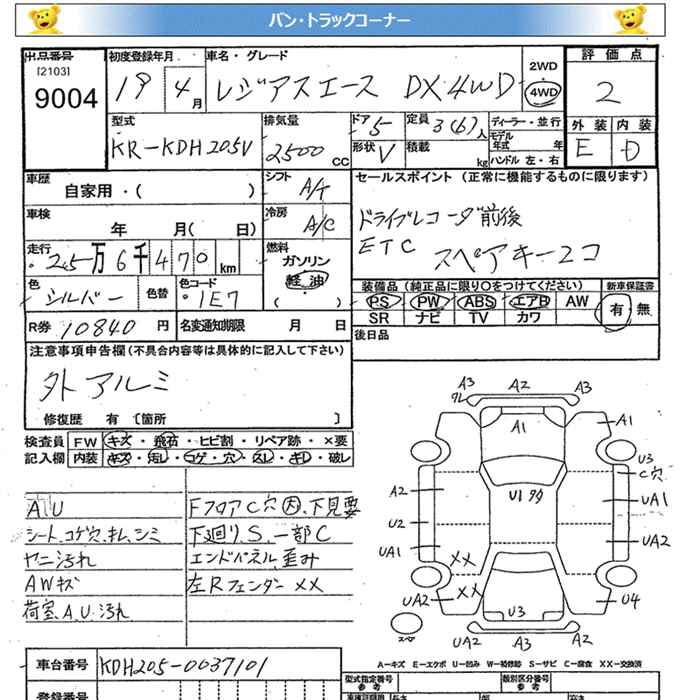 バン・トラックコーナー
出品番号 初度登録年月 車名・グレード 2WD 評価点
[2103]
9004 19 4月 レジアスエース DX 4WD 4WD 2
型式 排気量 ドア 5 定員 3(6)人 ディーラー・並行 外装 内装
KR-KDH205V 2500cc 形状 V 積載 kg モデル年式 年 E D
ハンドル 左・右
車歴 シフト A/T セールスポイント (正常に機能するものに限ります)
自家用・( )
車検 冷房 A/C ドライブレコーダ前後
年 月( 日) ETC スペアキー2コ
走行 燃料
25万6千470km ガソリン
軽油
( )
色 シルバー 色替 色コード 1E7 装備品 (純正品に限り○をつけてください) 新車保証書
PS PW ABS エアB AW 有・無
R券 10840円 名変通知期限 月 日 SR ナビ TV カワ
後日品
注意事項申告欄(不具合内容等は具体的に記入して下さい)
外アルミ
修復歴 有 〔箇所 〕
検査員 FW キズ・飛石・ヒビ割・リペア跡・×要
記入欄 内装 キズ・汚レ・コゲ・穴・スレ・キレ・破レ
A U Fフロア C穴 因、下見要
シート、コゲ穴、キレ、シミ 下廻り、S、一部C
ヤニ汚れ エンドパネル 歪み
AWキズ 左Rフェンダー XX
荷室、A.U.汚れ
A3 A2 A3
A1 A1
U3
C穴
A2 U1多 UA1
U2
UA1 UA2
XX
XX
UA2 U3 U4
スペア UA2 A3 UA2
A-キズ E-エクボ U-凹み W-補修跡 S-サビ C-腐食 XX-交換済
車台番号 KDH205-0037101
型式指定番号 参考 類別区分番号 参考
登録番号